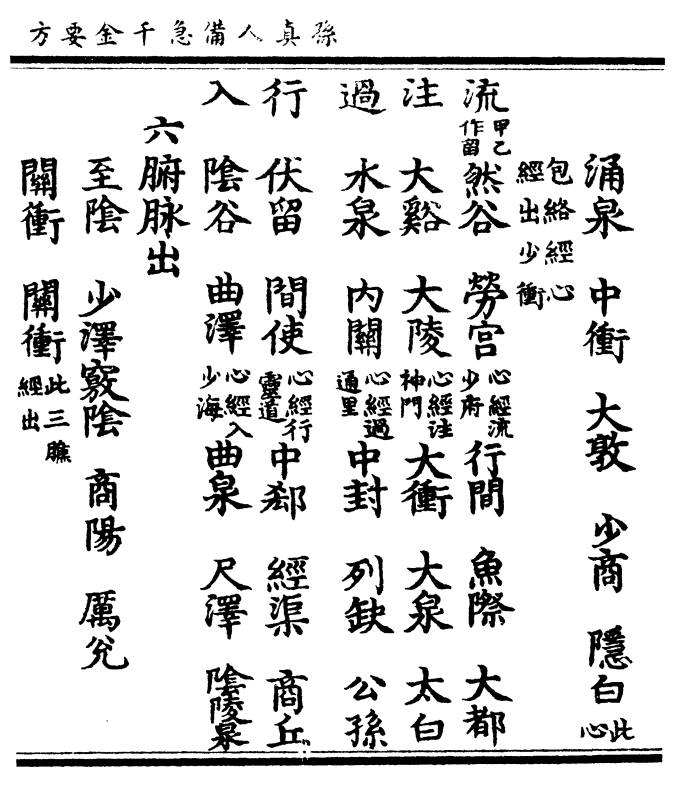 孫真人備急千金要方
涌泉 中衝 大敦 少商 隱白 此心
包絡經心經出少衝
流 甲乙作留 然谷 勞宫 心經流少府 行間 魚際 大都
注 大谿 大陵 心經注神門 大衝 大泉 太白
過 水泉 內關 心經過通里 中封 列缺 公孫
行 伏留 間使 心經行靈道 中郄 經渠 商丘
入 陰谷 曲澤 心經入少海 曲泉 尺澤 陰陵泉
六腑脉出
至陰 少澤 竅陰 商陽 厲兊
關衝 關衝 此三膲經出